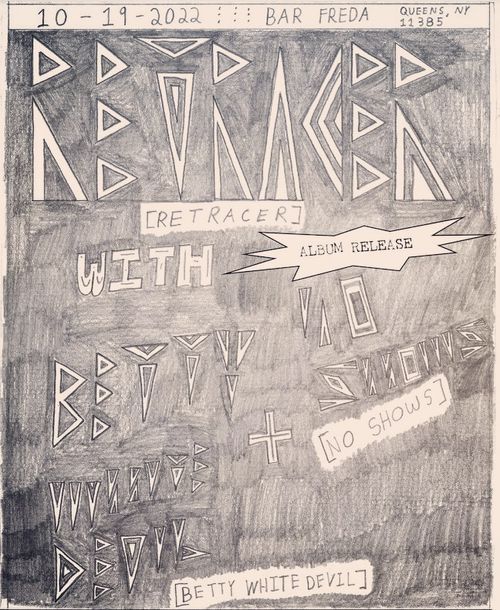 10-19-2022 ⋮⋮⋮ BAR FREDA QUEENS, NY
11385
RETRACER
[RETRACER]
WITH
ALBUM RELEASE
NO
SHOWS
[NO SHOWS]
BETTY
+
WHITE
DEVIL
[BETTY WHITE DEVIL]